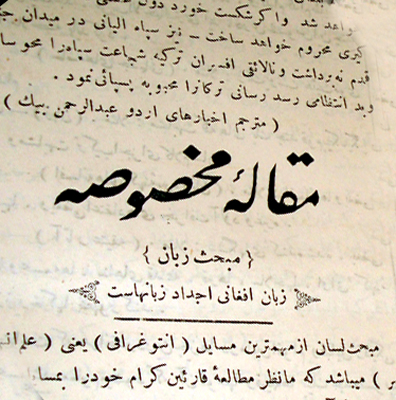 خواهد شد واگر شکست خورد دول
گیری محروم خواهد ساخت - نیز سپاه البانی در میدان
قدم نه برداشت ونالائقی افسران ترکیه شجاعت سپاه را محو
وبد انتظامی رسد رسانی ترکانرا مجبور به پسپائی نمود .
( مترجم اخبارهای اردو عبدالرحمن بیك )
مقالهٔ مخصوصه
{ مبحث زبان }
زبان افغانی اجداد زبانهاست
مبحث لسان از مهمترین مسایل ( انتوغرافی ) یعنی ( علم
) میباشد که مانظر مطالعهٔ قارئین کرام خودرا بمسا